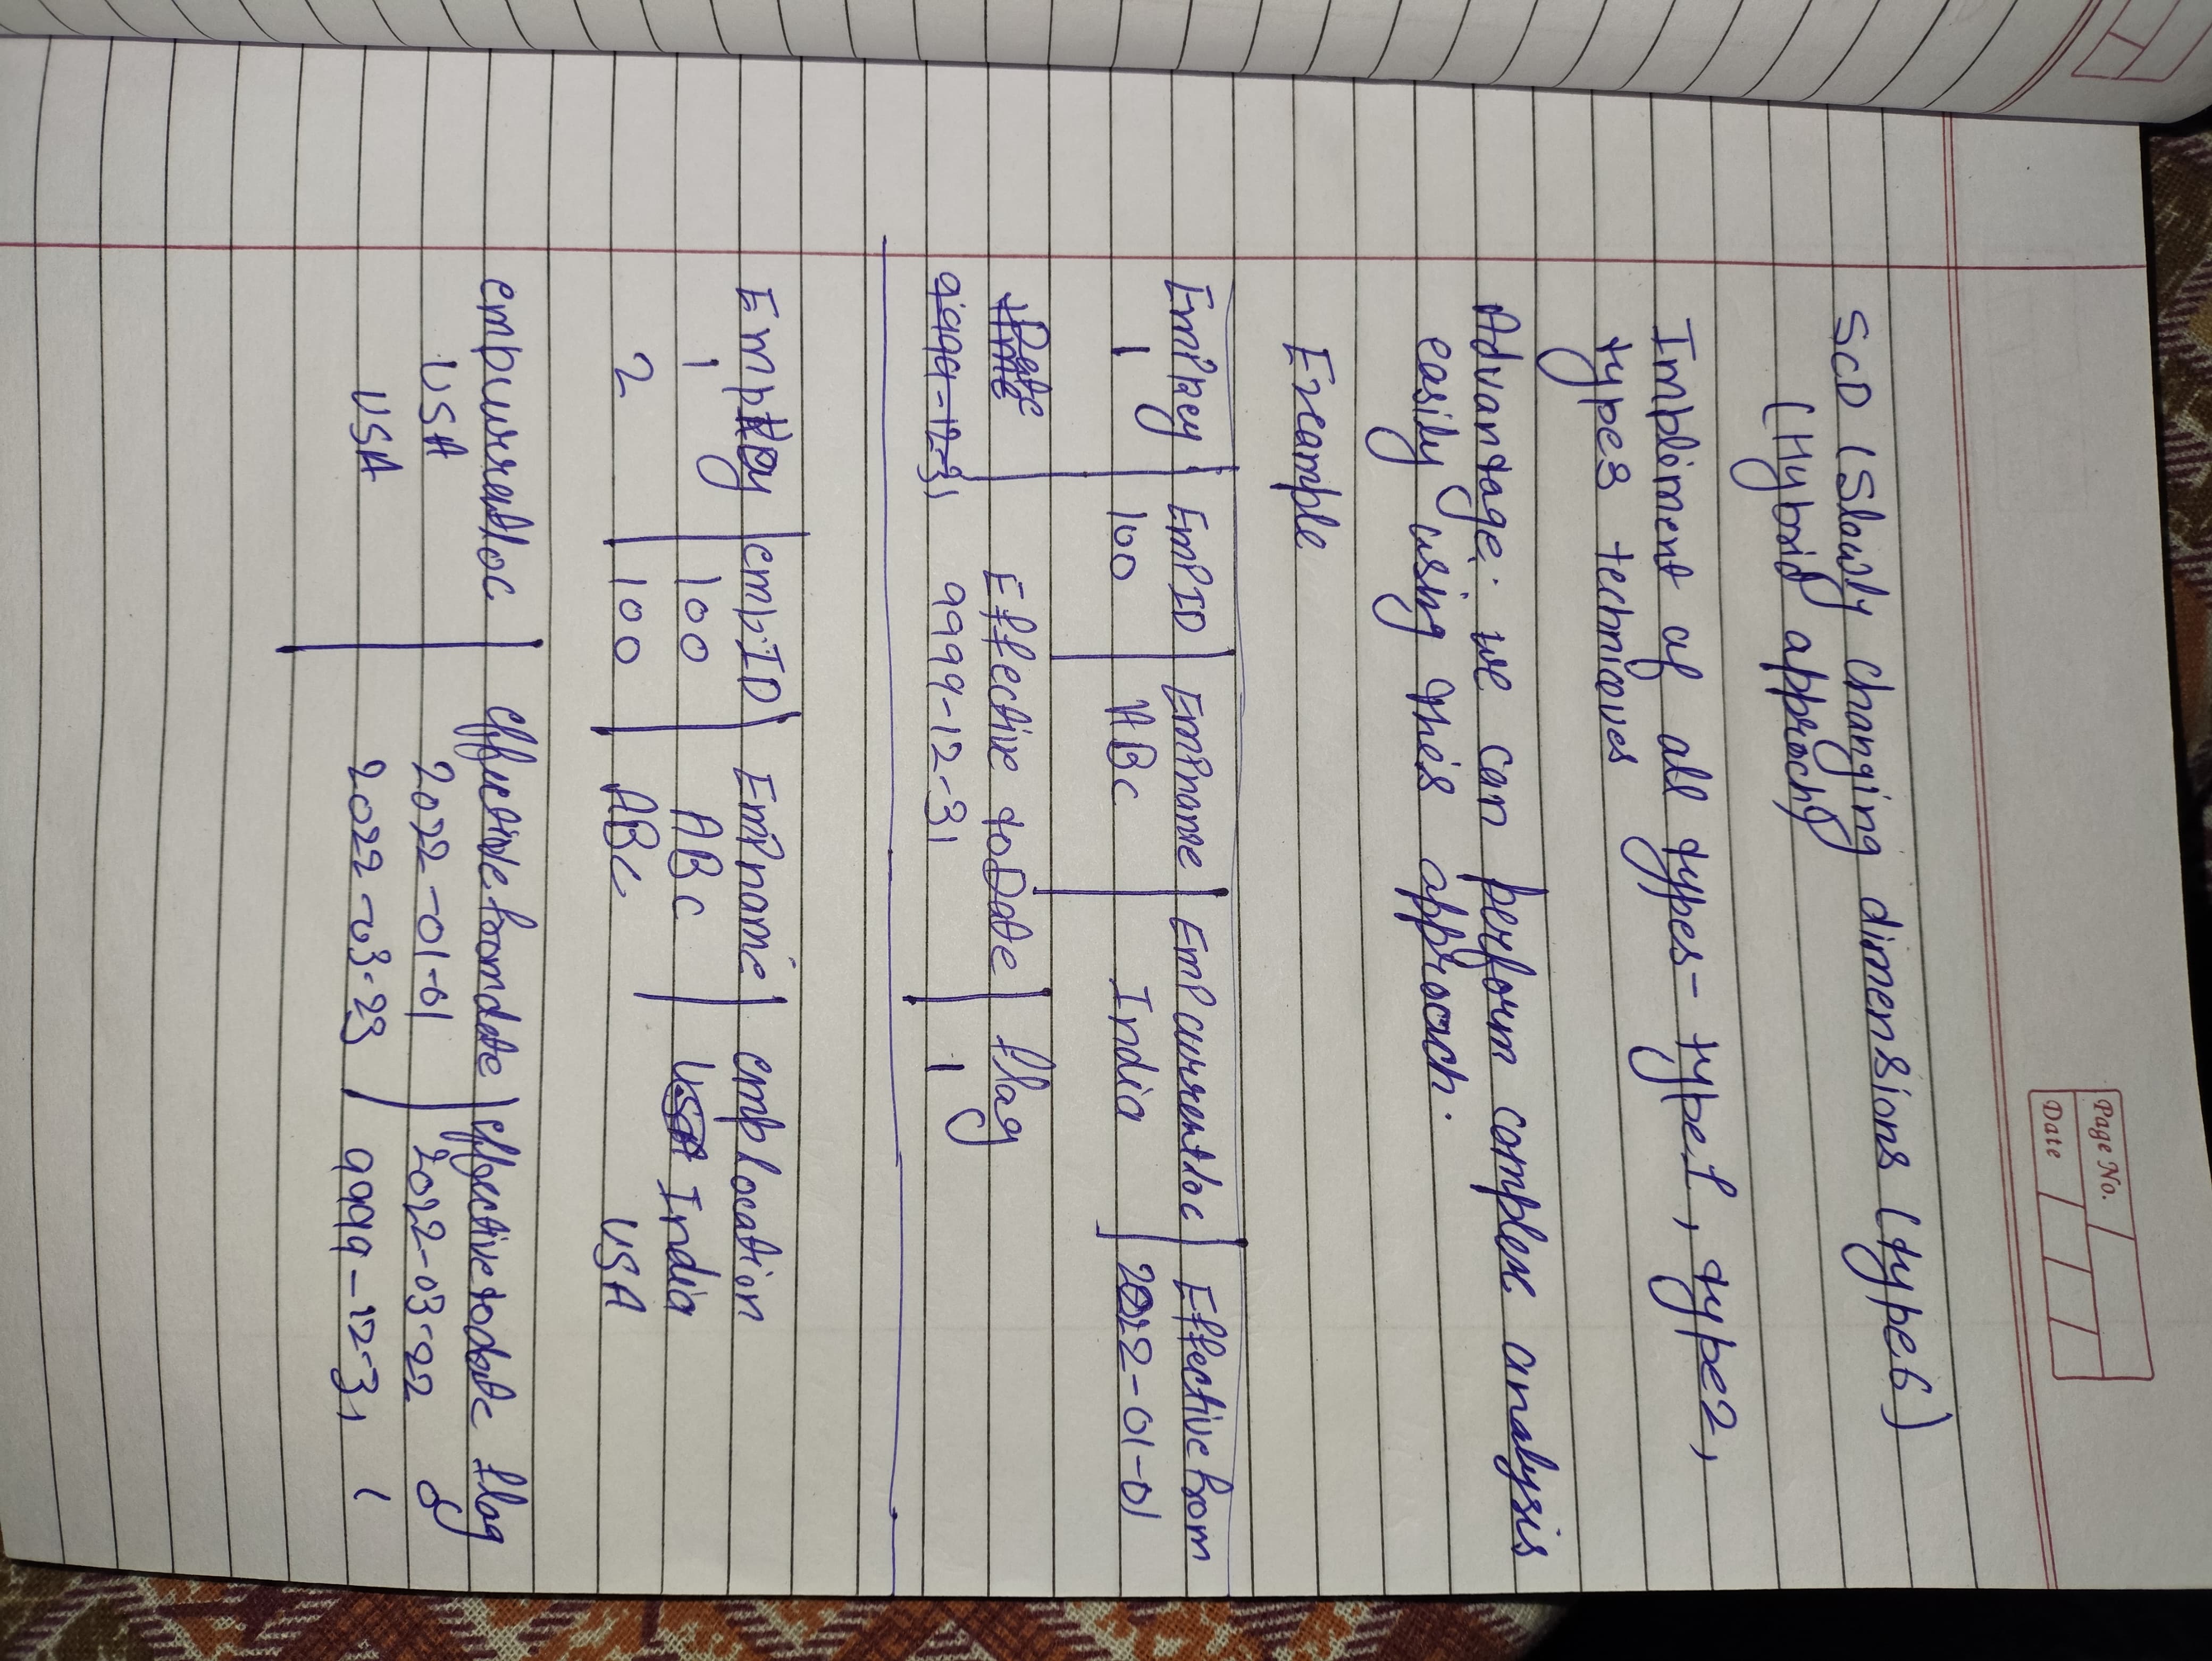 Page No.
Date
SCD (Slowly changing dimensions (type6)
(Hybrid approch)
Impliment of all types - type1, type2,
type3 techniques
Advantage: we can perform complex analysis
easily using this approach.
Example
EmPkey | EmPID | EmPname | EmPcurrentloc | Effective from
1 100 ABC India 2022-01-01
Date Effective toDate | flag
9999-12-31 9999-12-31 | 1
Empkey | empID | EmPname | emplocation
1 100 ABC India
2 100 ABC USA
empcurrentloc | effectivefromdate | effectivetodate flag
USA 2022-01-01 2022-03-22 0
USA 2022-03-23 9999-12-31 1